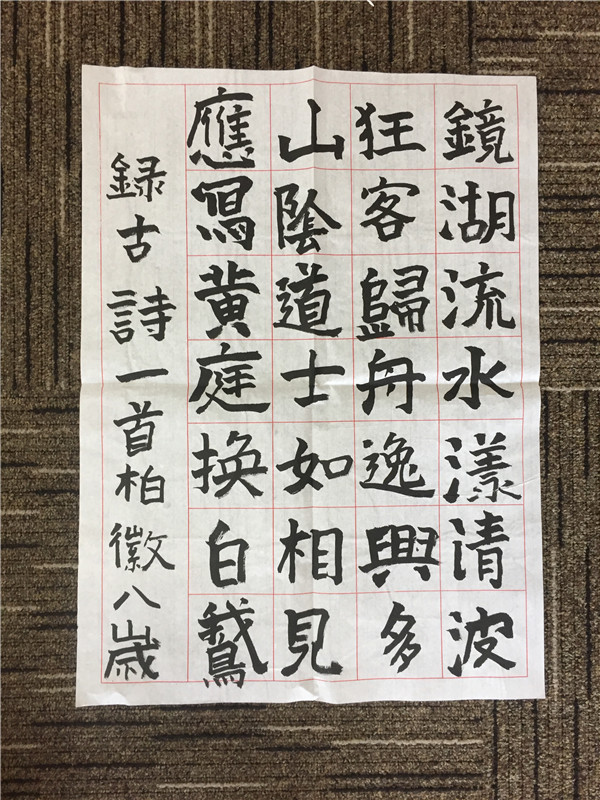 鏡湖流水漾清波
狂客歸舟逸興多
山陰道士如相見
應寫黃庭換白鵞
録古詩一首柏徽八歲